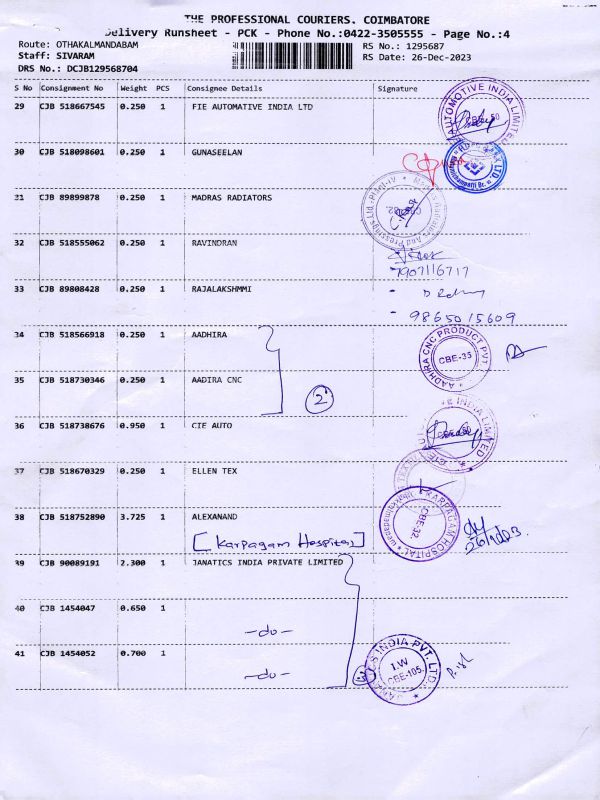 THE PROFESSIONAL COURIERS. COIMBATORE
Delivery Runsheet - PCK - Phone No.:0422-3505555 - Page No.:4
Route: OTHAKALMANDABAM
RS No.: 1295687
Staff: SIVARAM
RS Date: 26-Dec-2023
DRS No.: DCJB129568704
S No Consignment No Weight PCS Consignee Details Signature
29 CJB 518667545 0.250 1 FIE AUTOMATIVE INDIA LTD
AUTOMOTIVE INDIA LIMITED
30 CJB 518098601 0.250 1 GUNASEELAN
31 CJB 89899878 0.250 1 MADRAS RADIATORS
Madras Radiators And Pressings Ltd.-Plant-IV
CBE-32.
32 CJB 518555062 0.250 1 RAVINDRAN
7907116717
33 CJB 89808428 0.250 1 RAJALAKSHMMI
9865015609
34 CJB 518566918 0.250 1 AADHIRA
AADHIRA CNC PRODUCT PVT.
CBE-35
35 CJB 518730346 0.250 1 AADIRA CNC
2
36 CJB 518738676 0.950 1 CIE AUTO
INDIA LIMITED
37 CJB 518670329 0.250 1 ELLEN TEX
38 CJB 518752890 3.725 1 ALEXANAND
[Karpagam Hospital]
KARPAGAM HOSPITAL
CBE-32.
39 CJB 90089191 2.300 1 JANATICS INDIA PRIVATE LIMITED
40 CJB 1454047 0.650 1
-do-
41 CJB 1454052 0.700 1
-do-
JANATICS INDIA PVT. LTD.
I.W
CBE-105.